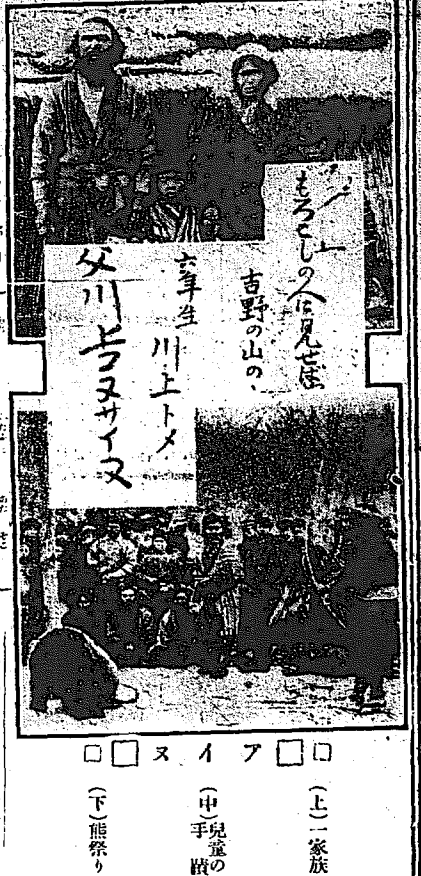 もろこしの人に見せば
吉野の山の、
六年生 川上トメ
父川上コヌサイヌ
□□アイヌ□□
(上)一家族
(中)兒童の手蹟
(下)熊祭り